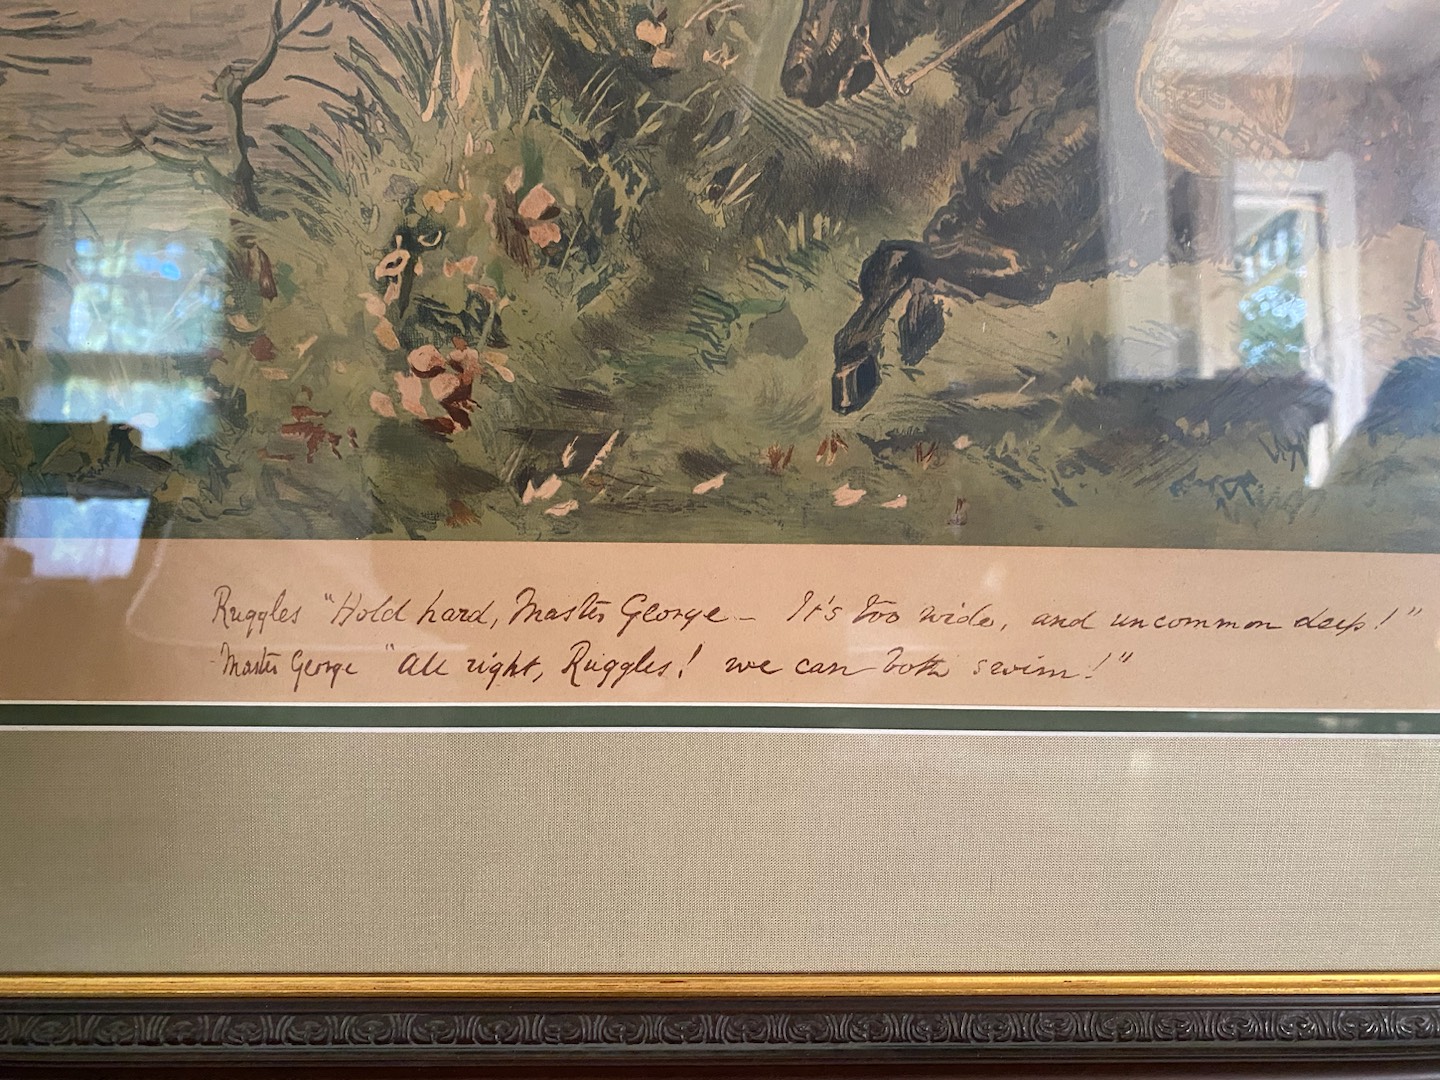 Ruggles "Hold hard, Master George – It's too wide, and uncommon deep!"
Master George "All right, Ruggles! we can both swim!"